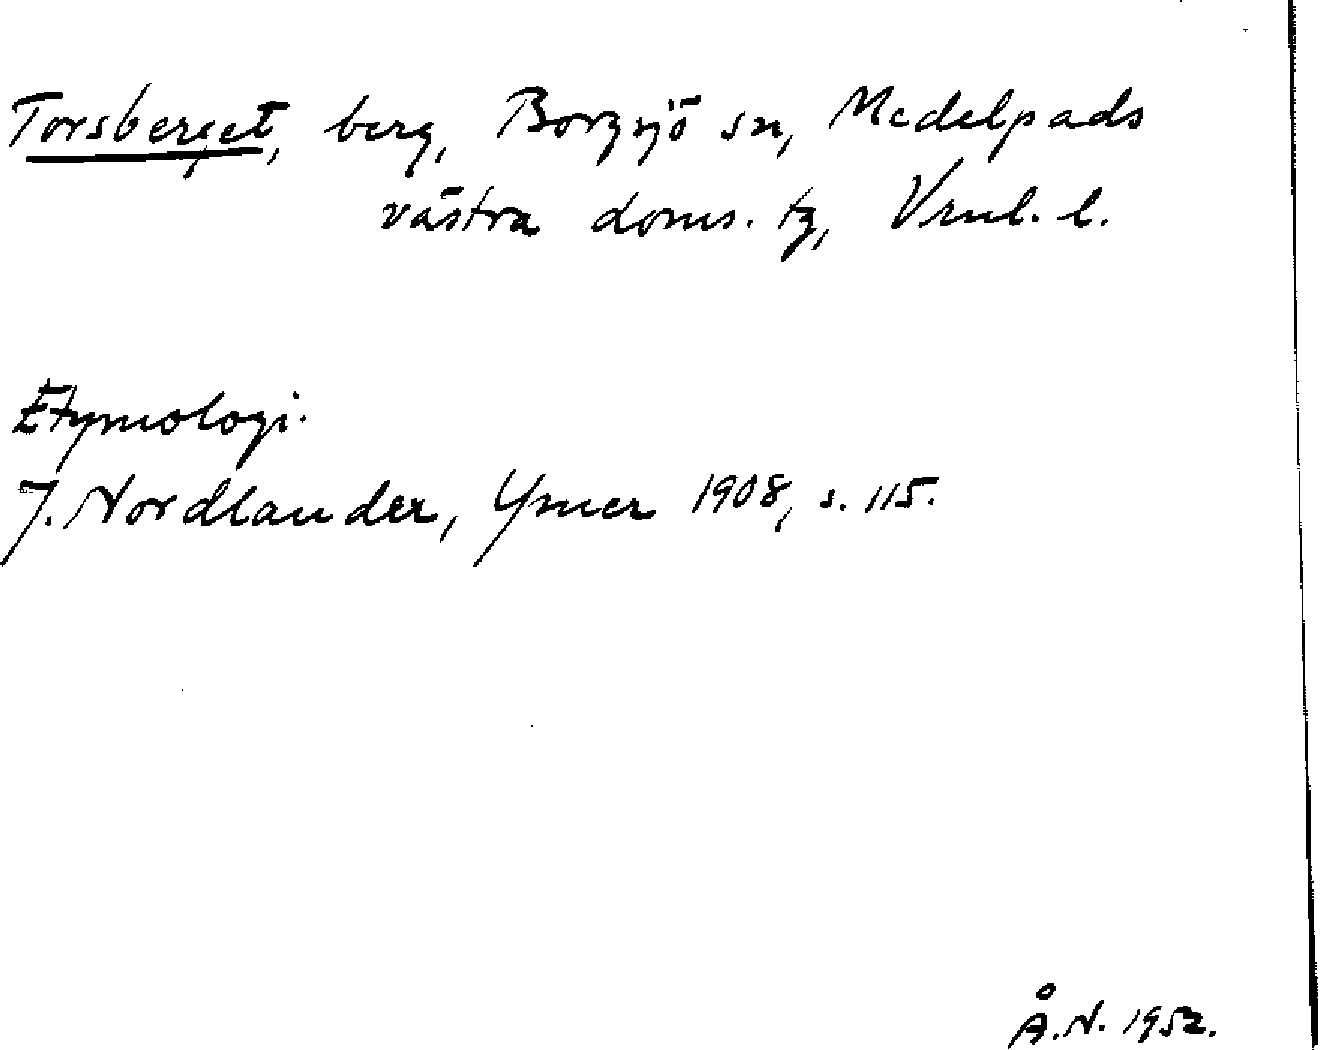 Torsberget, berg, Borgsjö sn, Medelpads
västra doms. tg, Vrnl. l.
Etymologi.
J. Nordlander, Ymer 1908, s. 115.
Å.N. 1952.